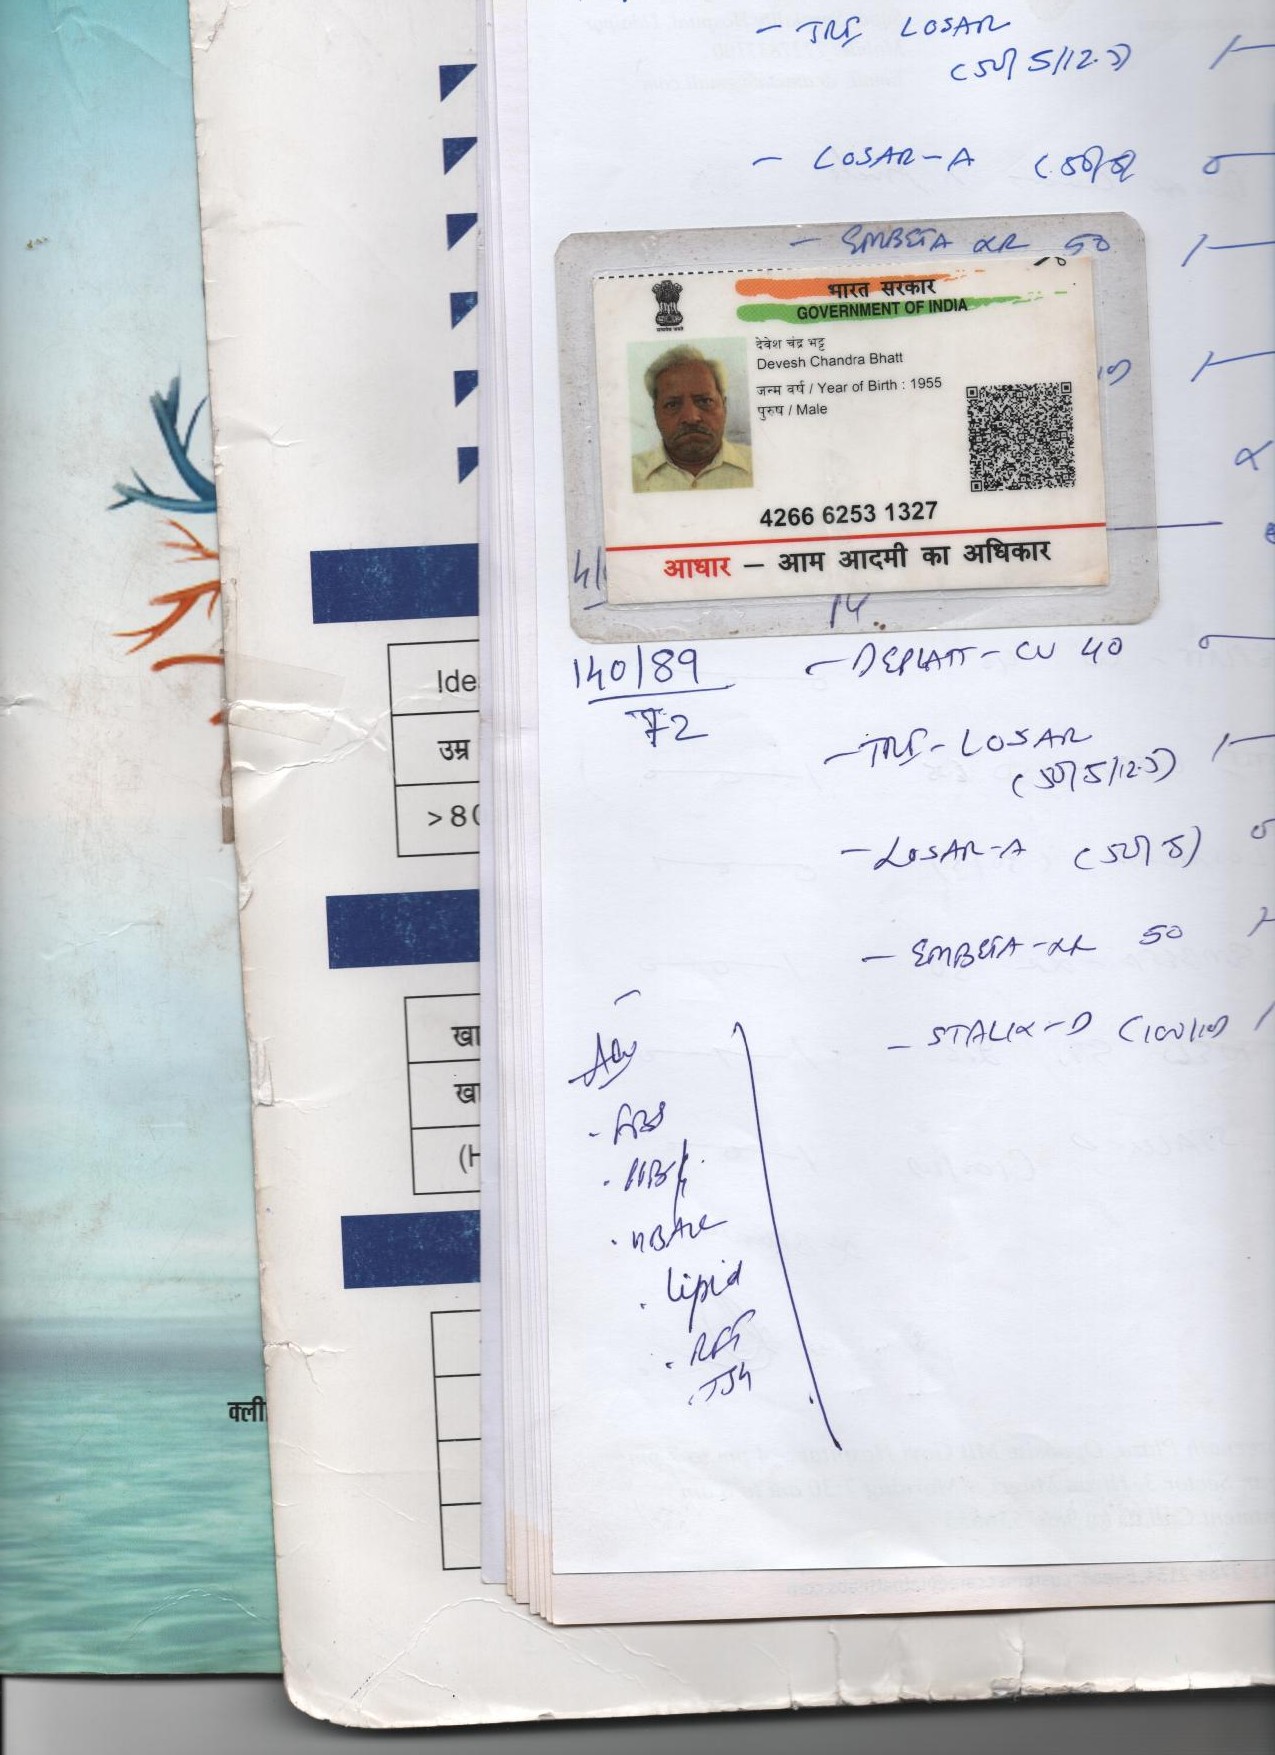 - TRI LOSAR
(50/5/12.5)
- LOSAR-A (50/5)
- EMBETA XR 50
भारत सरकार
GOVERNMENT OF INDIA
देवेश चंद्र भट्ट
Devesh Chandra Bhatt
जन्म वर्ष / Year of Birth : 1955
पुरुष / Male
4266 6253 1327
आधार – आम आदमी का अधिकार
140/89
72
- DEPLATT-CV 40
- TRI-LOSAR
(50/5/12.5)
- LOSAR-A (50/5)
- EMBETA-XR 50
- STALIX-D (100/10)
Adv
. FBS
. HBA1C
. lipid
. RFT
. TSH
Ide
उम्र
>80
खा
खा
(H
क्ली